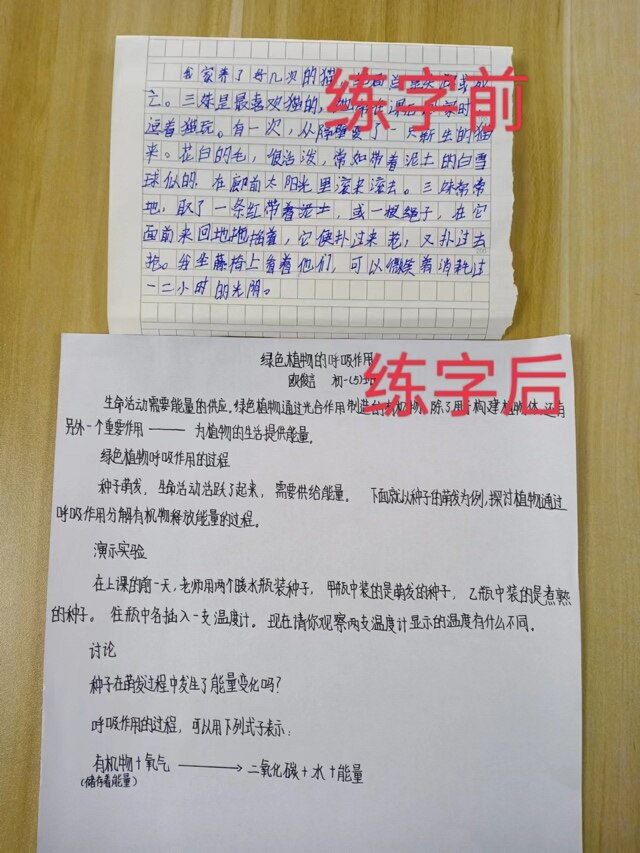 练字前
我家养了好几次的猫，
亡。三妹是最喜欢猫的，
逗着猫玩。有一次，从隔壁要了一只新生的猫
来。花白的毛，很活泼，常如带着泥土的白雪
球似的，在廊前太阳光里滚来滚去。三妹常常
地，取了一条红带着泥土，或一根绳子，在它
面前来回地拖摇着，它便扑过来抢，又扑过去
抢。我坐藤椅上看着他们，可以微笑着消耗过
一二小时的光阴。
练字后
绿色植物的呼吸作用
初一(5)班
生命活动需要能量的供应。绿色植物通过光合作用制造的有机物，除了用于构建植物体，还有
另外一个重要作用——为植物的生活提供能量。
绿色植物呼吸作用的过程
种子萌发，生命活动活跃了起来，需要供给能量。下面就以种子的萌发为例，探讨植物通过
呼吸作用分解有机物释放能量的过程。
演示实验
在上课的前一天，老师用两个暖水瓶装种子，甲瓶中装的是萌发的种子，乙瓶中装的是煮熟
的种子。往瓶中各插入一支温度计。现在请你观察两支温度计显示的温度有什么不同。
讨论
种子在萌发过程中发生了能量变化吗？
呼吸作用的过程，可以用下列式子表示：
有机物+氧气 ⟶ 二氧化碳+水+能量
(储存着能量)